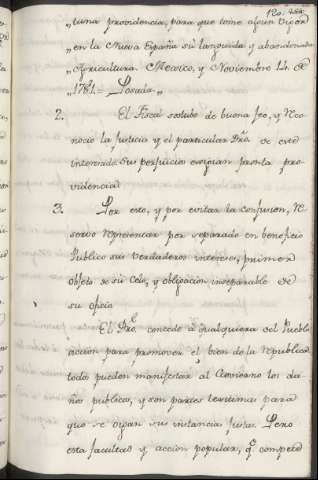 „tuna providencia, para que tome algun vigor
„en la Nueva España su languida y abandonada
„Agricultura. Mexico, y Noviembre 14 de
„1781 = Posada „
2. El Fiscal sostubo de buena feé, y reco
nocio la justicia y el particular Dro. de este
interesado. Sus perjuicios exigian pronta pro
videncia.
3. Por esto, y por evitar la confusion, re
servó representar por separado en beneficio
Publico sus verdaderos intereses, primer
objeto de su celo, y obligacion inseparable de
su oficio.
El Dro. concede á qualquiera del Pueblo
accion para promover el bien de la republica
todos pueden manifestar al Govierno los da
ños publicos, y son partes lexitimas para
que se oigan sus instancias justas. Pero
esta facultad y accion popular, qe. compete